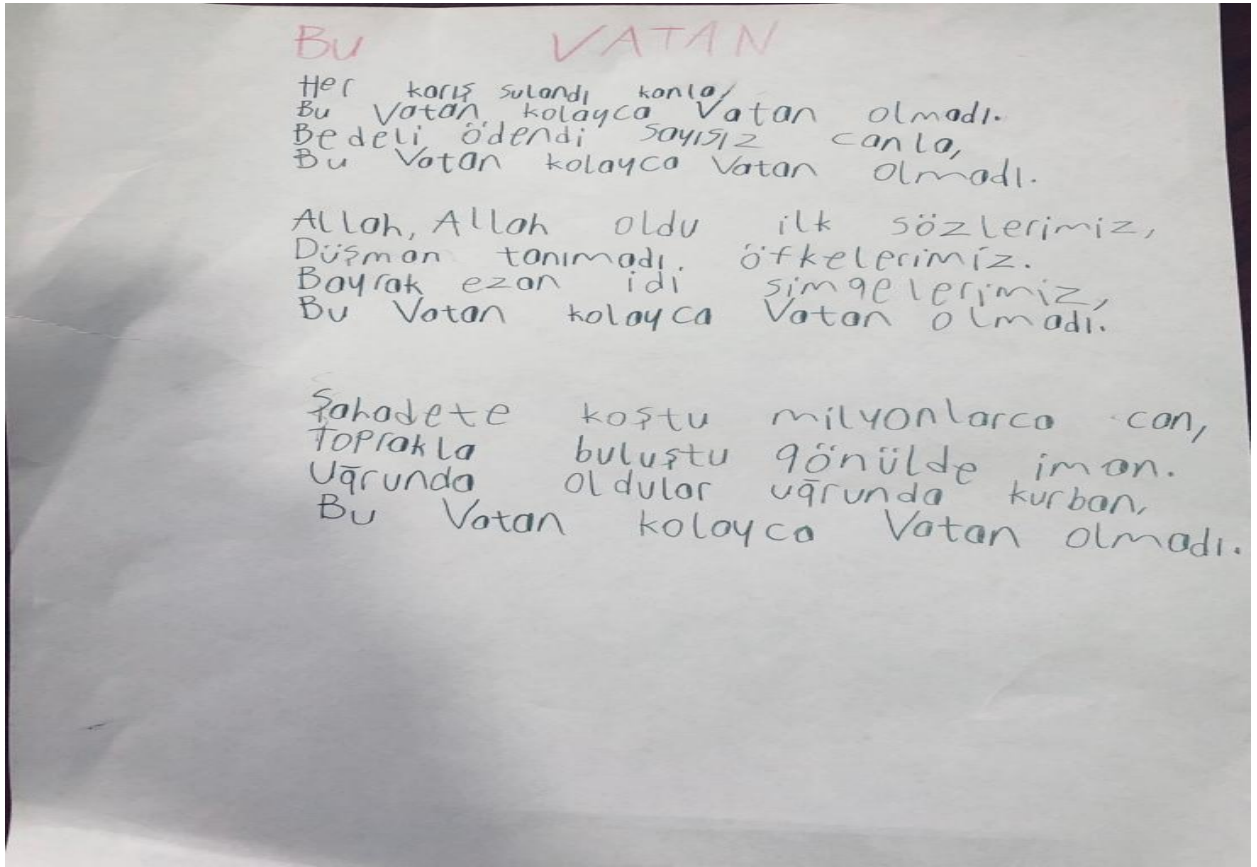 Bu VATAN
Her karış sulandı kanla,
Bu Vatan kolayca Vatan olmadı.
Bedeli ödendi sayısız canla,
Bu Vatan kolayca Vatan olmadı.
Allah, Allah oldu ilk sözlerimiz,
Düşman tanımadı. öfkelerimiz.
Bayrak ezan idi simgelerimiz,
Bu Vatan kolayca Vatan olmadı.
Şahadete koştu milyonlarca can,
Toprakla buluştu gönülde iman.
Uğrunda oldular uğrunda kurban,
Bu Vatan kolayca Vatan olmadı.